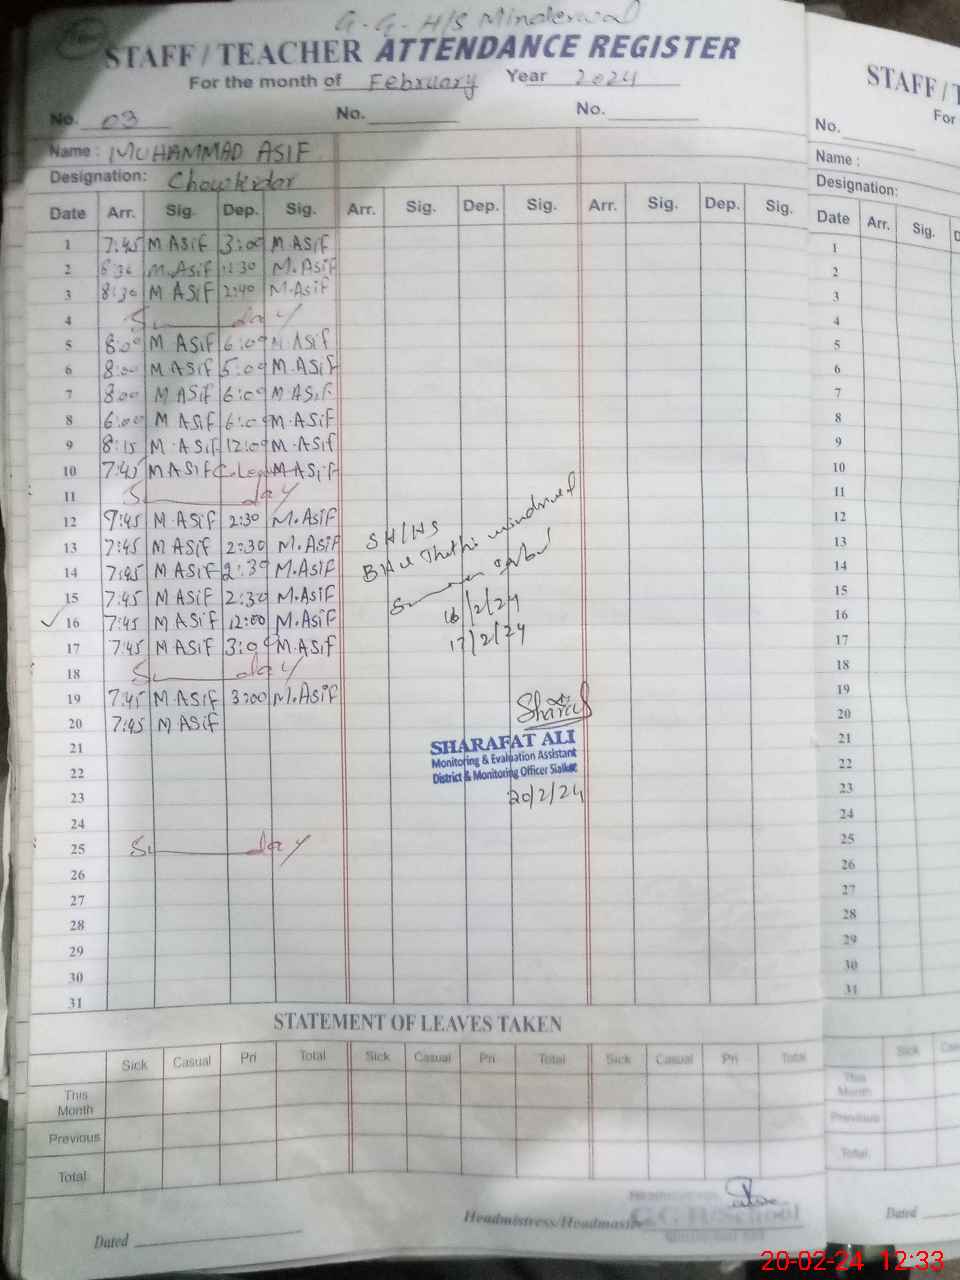 G. G. H/S Minderwal
STAFF / TEACHER ATTENDANCE REGISTER
For the month of February Year 2024
No. 03 No. No.
Name : MUHAMMAD ASIF
Designation: Chowkidar
Date Arr. Sig. Dep. Sig. Arr. Sig. Dep. Sig. Arr. Sig. Dep. Sig.
1 7:45 M ASIF 3:00 M.ASIF
2 8:30 M.ASIF 11:30 M.ASIF
3 8:30 M ASIF 2:40 M.ASIF
4 Sunday
5 8:00 M ASIF 6:00 M.ASIF
6 8:00 M.ASIF 5:00 M.ASIF
7 8:00 M ASIF 6:00 M ASIF
8 6:00 M ASIF 6:00 M.ASIF
9 8:15 M.ASIF 12:00 M.ASIF
10 7:45 M ASIF M ASIF
11 Sunday
12 7:45 M.ASIF 2:30 M.ASIF
13 7:45 M ASIF 2:30 M.ASIF
14 7:45 M ASIF 2:30 M.ASIF
15 7:45 M ASIF 2:30 M.ASIF
16 7:45 M ASIF 12:00 M.ASIF
17 7:45 M ASIF 3:00 M.ASIF
18 Sunday
19 7:45 M ASIF 3:00 M.ASIF
20 7:45 M ASIF
21
22
23
24
25 Sunday
26
27
28
29
30
31
SH/HS
16/2/24
17/2/24
SHARAFAT ALI
Monitoring & Evaluation Assistant
District & Monitoring Officer Sialkot
20/2/24
STATEMENT OF LEAVES TAKEN
Sick Casual Pri Total Sick Casual Pri Total Sick Casual Pri Total
This Month
Previous
Total
Headmistress/Headmaster
G.G.H/School
Dated
STAFF / T
For
No.
Name :
Designation:
Date Arr. Sig. D
1
2
3
4
5
6
7
8
9
10
11
12
13
14
15
16
17
18
19
20
21
22
23
24
25
26
27
28
29
30
31
Sick
This Month
Previous
Total
Dated
20-02-24 12:33